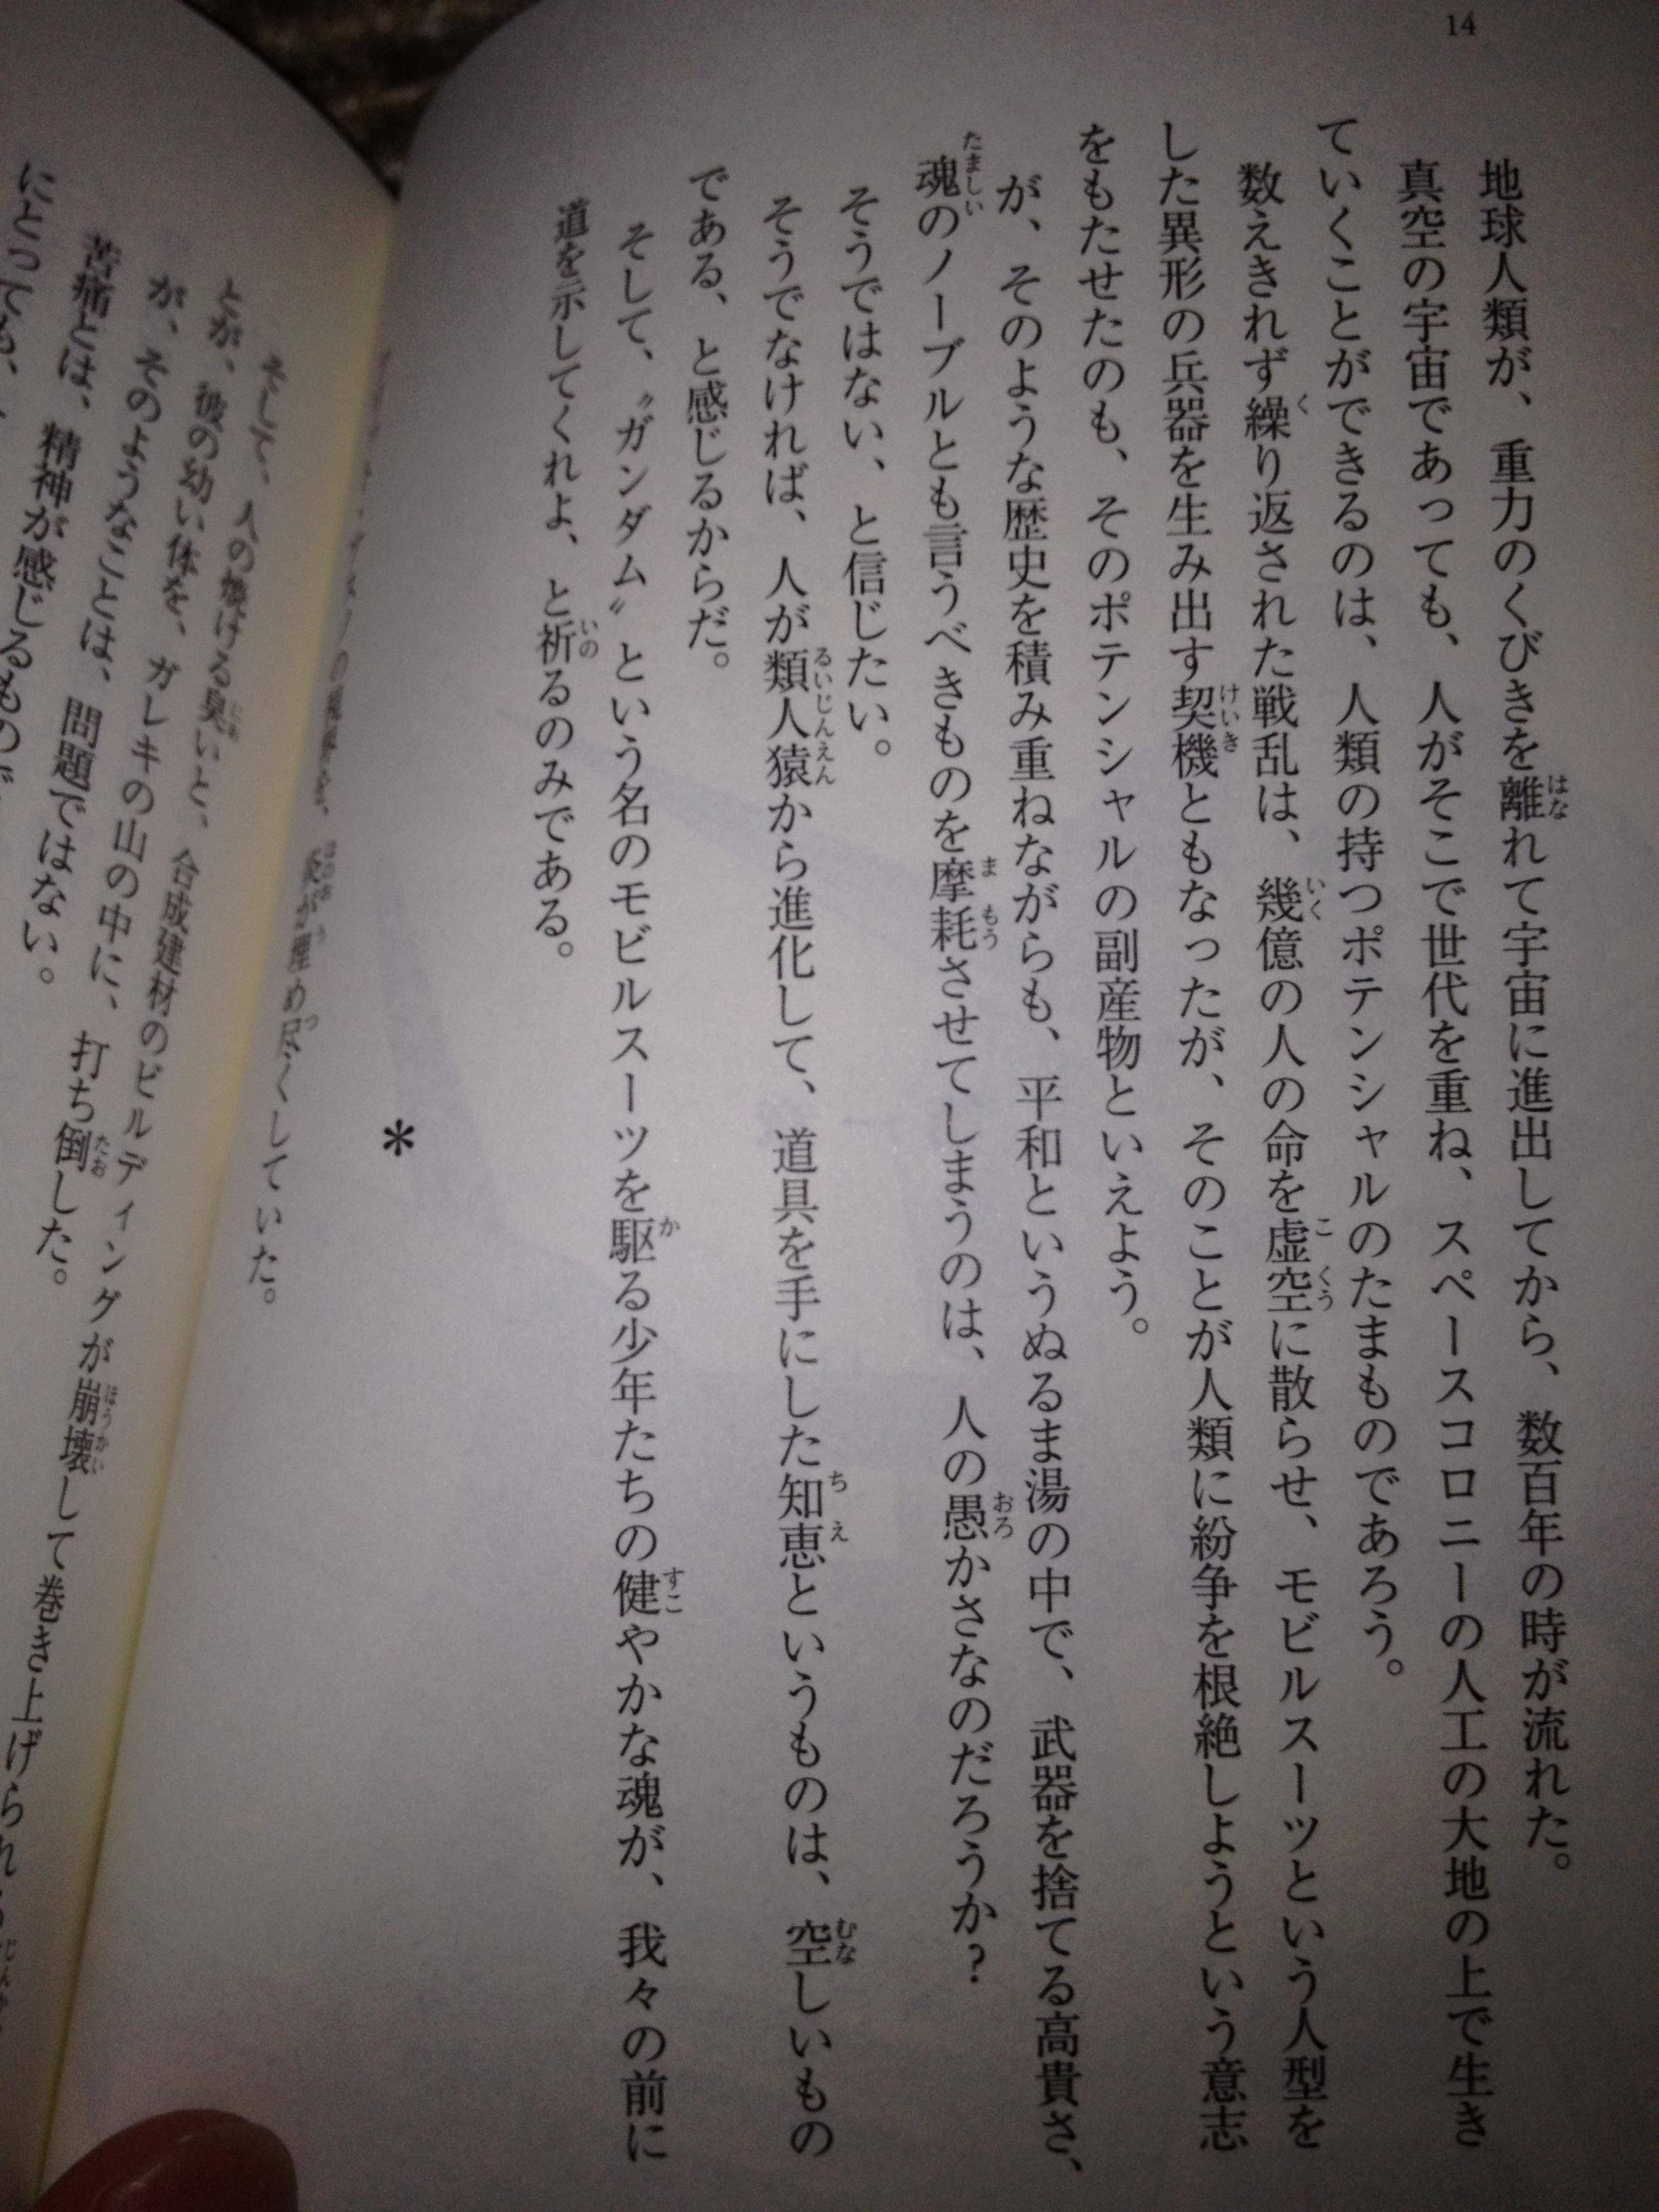 14
地球人類が、重力のくびきを離れて宇宙に進出してから、数百年の時が流れた。
真空の宇宙であっても、人がそこで世代を重ね、スペースコロニーの人工の大地の上で生き
ていくことができるのは、人類の持つポテンシャルのたまものであろう。
数えきれず繰り返された戦乱は、幾億の人の命を虚空に散らせ、モビルスーツという人型を
した異形の兵器を生み出す契機ともなったが、そのことが人類に紛争を根絶しようという意志
をもたせたのも、そのポテンシャルの副産物といえよう。
が、そのような歴史を積み重ねながらも、平和というぬるま湯の中で、武器を捨てる高貴さ、
魂のノーブルとも言うべきものを摩耗させてしまうのは、人の愚かさなのだろうか？
そうではない、と信じたい。
そうでなければ、人が類人猿から進化して、道具を手にした知恵というものは、空しいもの
である、と感じるからだ。
そして、〝ガンダム〟という名のモビルスーツを駆る少年たちの健やかな魂が、我々の前に
道を示してくれよ、と祈るのみである。
＊
の視界を、炎が埋め尽くしていた。
そして、人の焼ける臭いと、合成建材のビルディングが崩壊して巻き上げられる
とが、彼の幼い体を、ガレキの山の中に、打ち倒した。
が、そのようなことは、問題ではない。
苦痛とは、精神が感じるもので
にとっても、